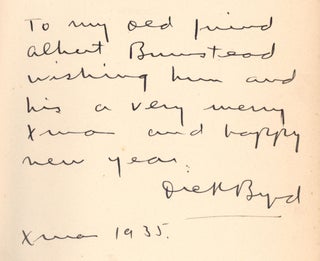 To my old friend
Albert Bumstead
wishing him and
his a very merry
Xmas and happy
new year.
Dick Byrd
Xmas 1935.